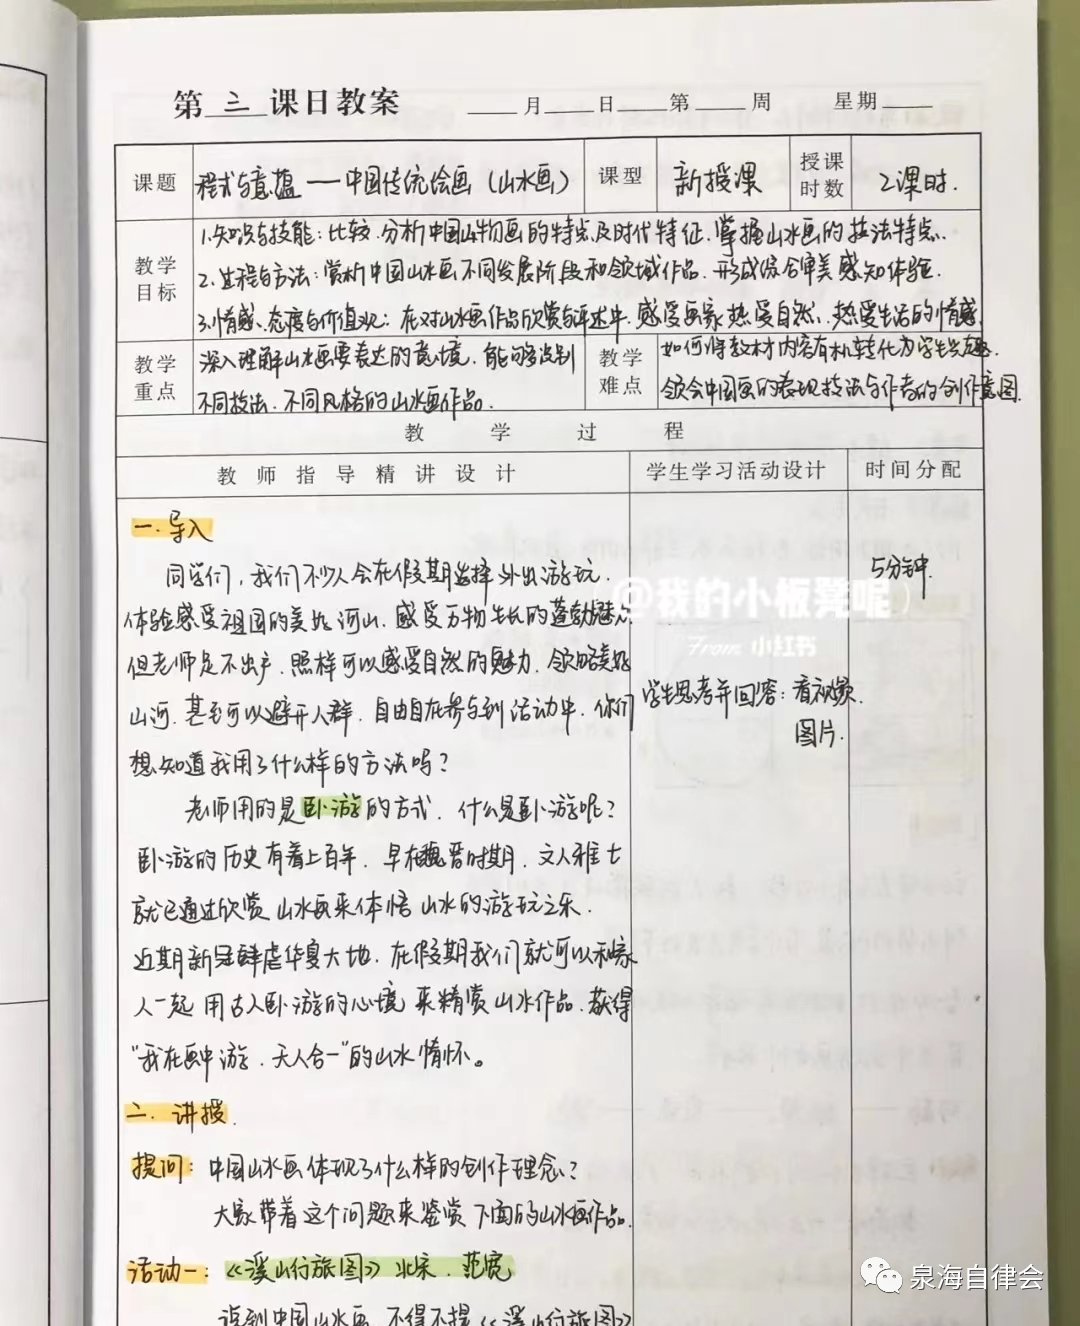 第 三 课日教案 ____月____日____第____周 星期____
课题 程式与意蕴——中国传统绘画（山水画） 课型 新授课 授课时数 2课时.
教学目标 1.知识与技能：比较.分析中国山水物画的特点及时代特征.掌握山水画的技法特点.
2.过程与方法：赏析中国山水画不同发展阶段和领域作品.形成综合审美感知体验.
3.情感、态度与价值观：在对山水画作品欣赏与评述中.感受画家热爱自然、热爱生活的情感.
教学重点 深入理解山水画要表达的意境.能够识别
不同技法.不同风格的山水画作品.
教学难点 如何将教材内容有机转化为学生兴趣.
领会中国画的表现技法与作者的创作意图.
教 学 过 程
教 师 指 导 精 讲 设 计 学生学习活动设计 时间分配
一.导入
同学们，我们不少人会在假期选择外出游玩. 5分钟.
体验感受祖国的美好河山.感受万物生长的蓬勃魅力.
但老师足不出户.照样可以感受自然的魅力.领略美好
山河.甚至可以避开人群.自由自在参与到活动中.你们
学生思考并回答：看视频.
图片.
想知道我用了什么样的方法吗？
老师用的是卧游的方式.什么是卧游呢？
卧游的历史有着上百年.早在魏晋时期.文人雅士
就已通过欣赏山水画来体悟山水的游玩之乐.
近期新冠肆虐华夏大地.在假期我们就可以和家
人一起用古人卧游的心境来精赏山水作品.获得
“我在画中游.天人合一”的山水情怀。
二.讲授.
提问：中国山水画体现了什么样的创作理念？
大家带着这个问题来鉴赏下面的山水画作品.
活动一：《溪山行旅图》北宋.范宽
谈到中国山水画.不得不提《溪山行旅图》
@我的小板凳呢
From 小红书
泉海自律会